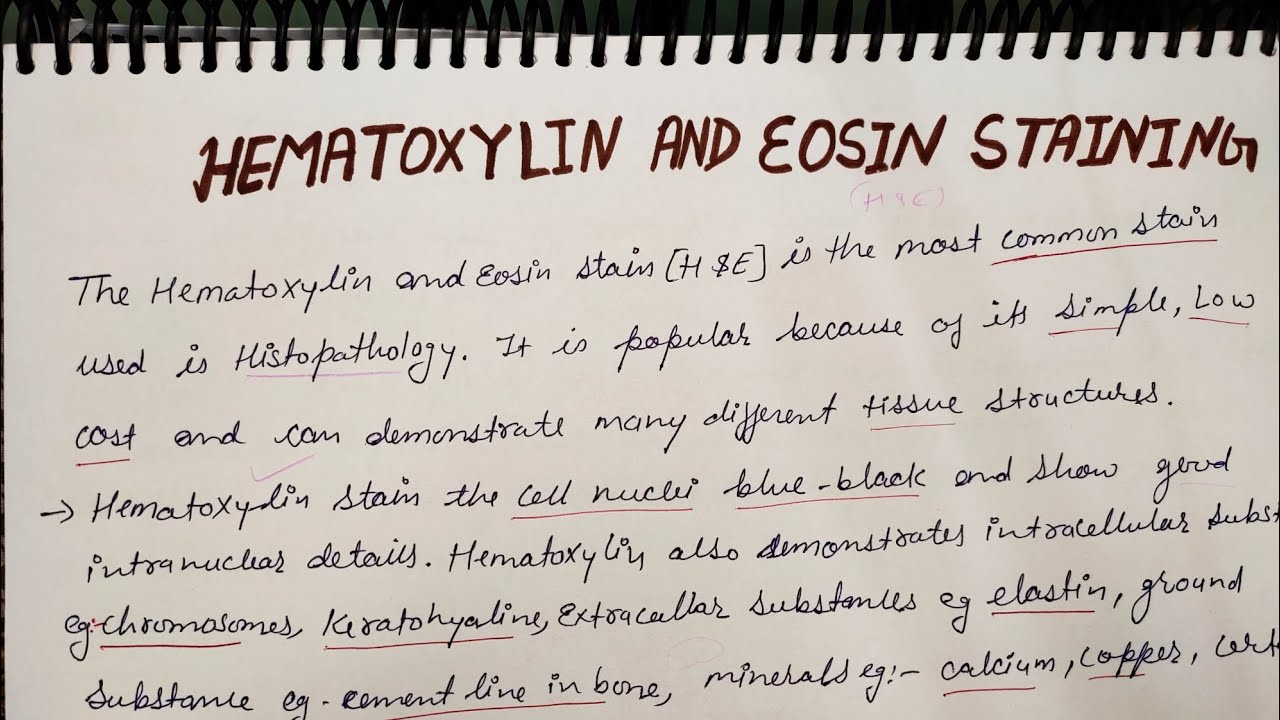 HEMATOXYLIN AND EOSIN STAINING
(H & E)
The Hematoxylin and Eosin stain [H &E] is the most common stain
used is Histopathology. It is popular because of its simple, Low
cost and can demonstrate many different tissue structures.
→ Hematoxylin stain the cell nuclei blue-black and show good
intranuclear details. Hematoxylin also demonstrates intracellular subst
eg:-chromosomes, Keratohyaline, Extracellar substances eg elastin, ground
substance eg - cement line in bone, minerals eg:- calcium, copper,